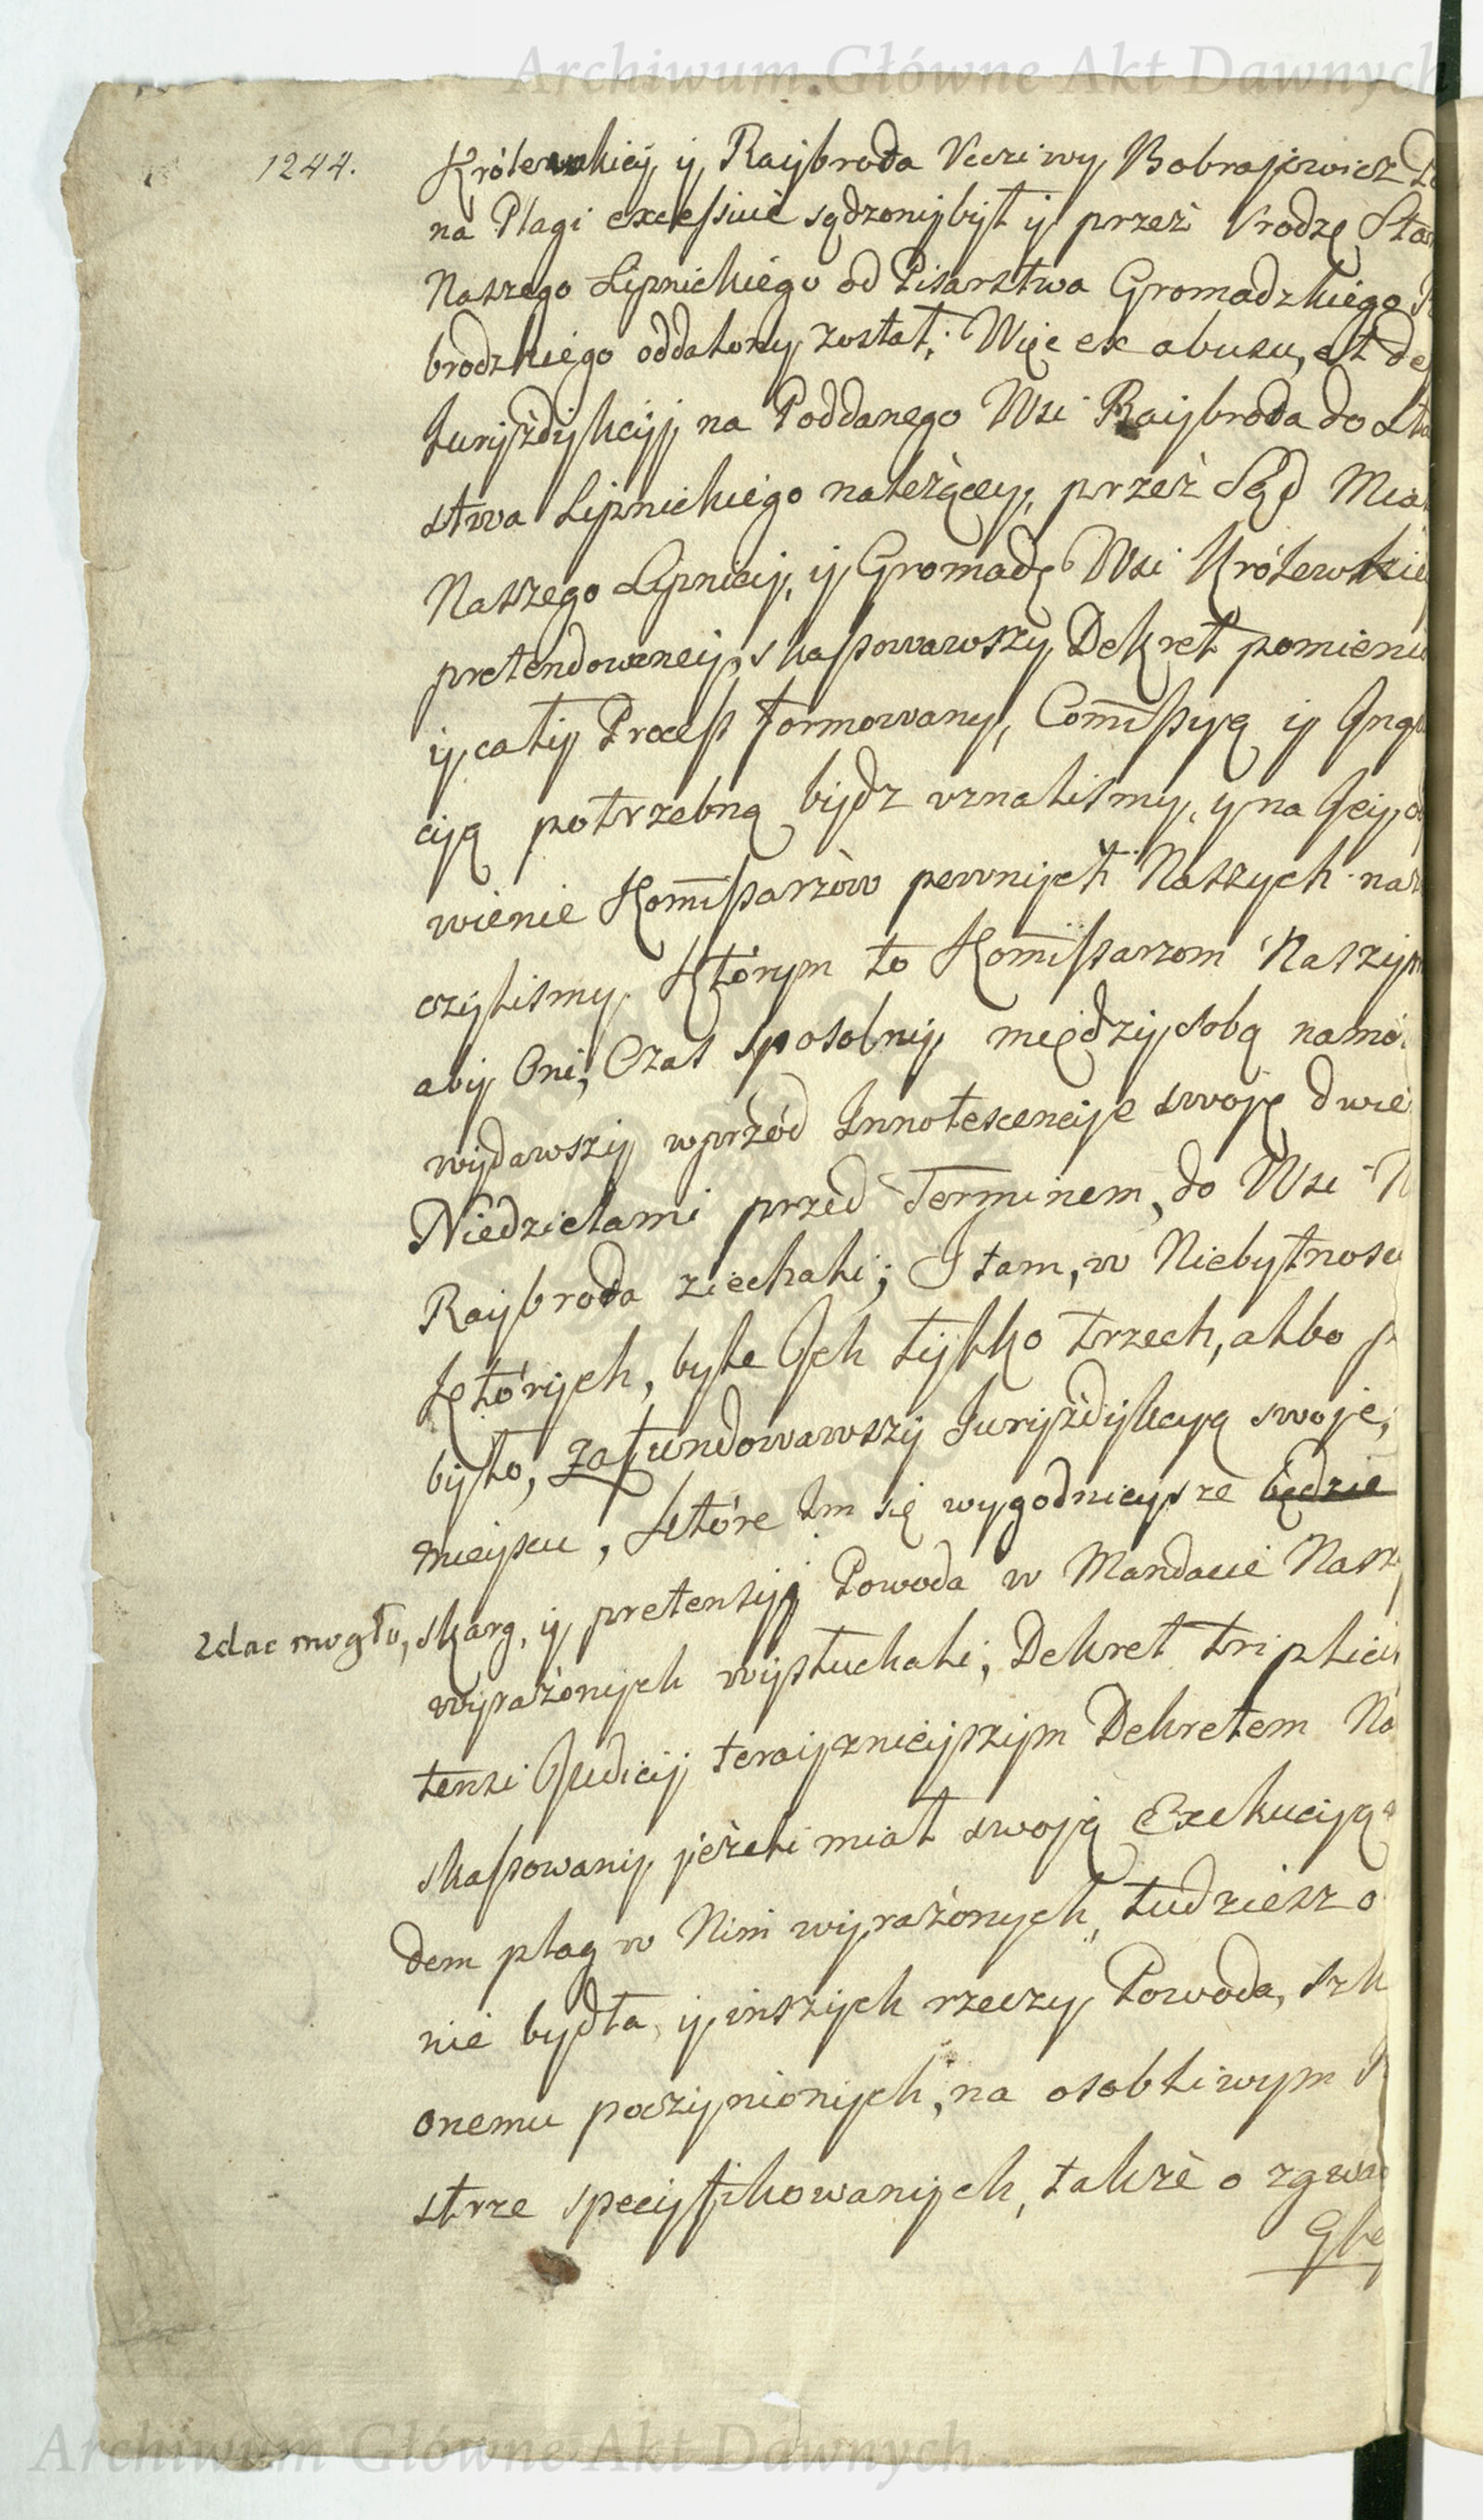 Archiwum Główne Akt Dawnych
1244.
Królewskiey y Raybroda Vcciwy Bobrajewicz
na Plagi excessive sądzony był y przez Vrodzę
Naszego Lipnickiego od Pisarstwa Gromadzkiego
brodzkiego oddalony został; Więc ex abusu, et
Juryzdykcyi na Poddanego Wsi Raybroda do
stwa Lipnickiego należący, przez Sąd
Naszego Lipnicy, y Gromadę Wsi Królewskiey
pretendowaney, skassowawszy Dekret
y cały Process formowany, Com̃issyą y
cyą potrzebną bydz vznaliśmy, y na Jey
wienie Kom̃issarzów pewnych Naszych
czyliśmy. Którym to Kom̃issarzom Naszym
aby Oni, Czas sposobny między sobą
wydawszy wprzód Innotescencye swoje dwie
Niedzielami przed Terminem, do Wsi
Raybroda ziechali; I tam, w Niebytnosci
których, byle Ich tylko trzech, albo
było, zafundowawszy Juryzdykcyą swoję,
mieyscu, które Im się wygodnieysze będzie
zdac mogło, skarg, y pretensyi Powoda w Mandacie
wyrażonych wysłuchali, Dekret
tensi Judicij teraznieyszym Dekretem
skassowany jeżeli miał swoją Exekucyą
dem plag w Nim wyrażonych, tudziesz o
nie bydła, y inszych rzeczy Powoda,
onemu poczynionych, na osobliwym
strze specyfikowanych, także o
Archiwum Główne Akt Dawnych